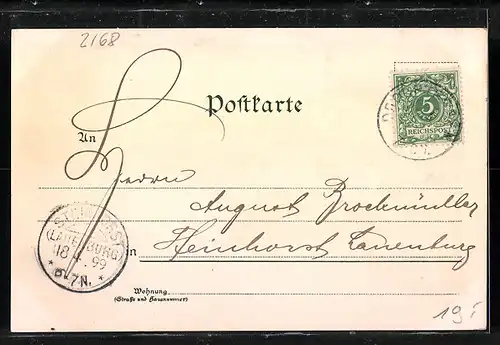 2168
Postkarte
5
REICHSPOST
An
Herrn
August Brockmüller
STEINHORST
(LAUENBURG)
18 4. 99
* 6-7N. *
in Steinhorst Lauenburg
Wohnung
(Straße und Hausnummer)